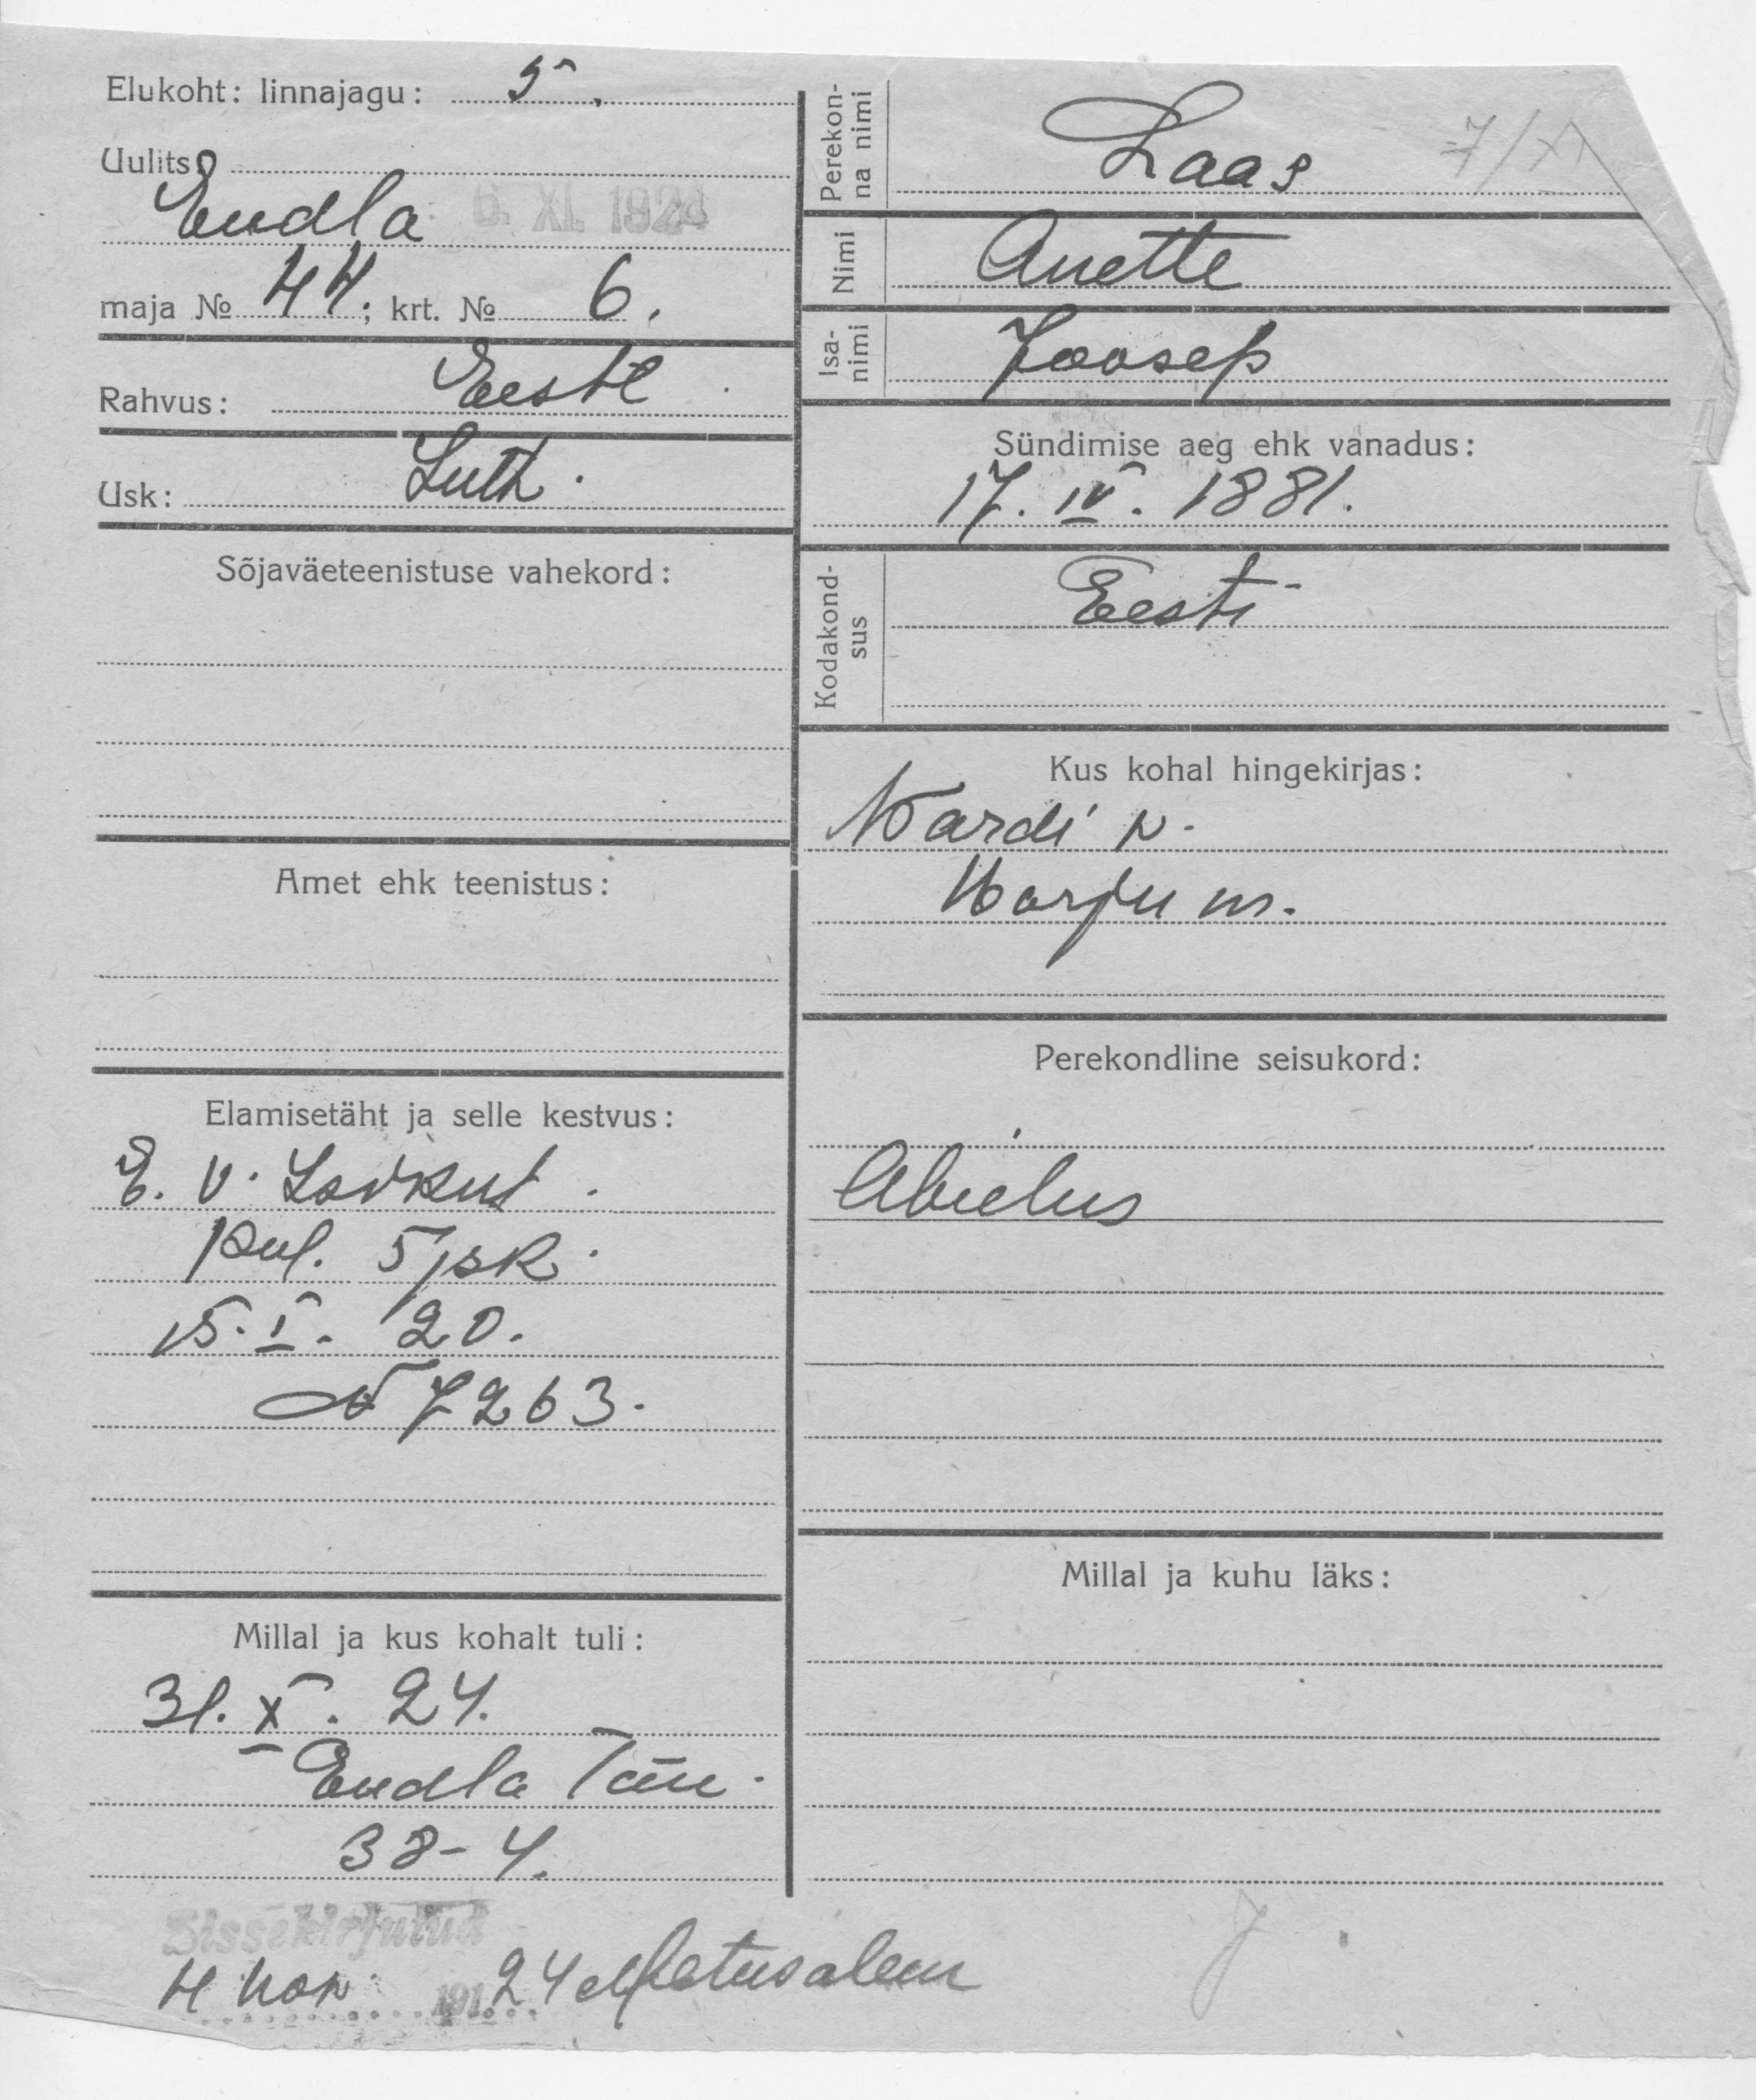 Elukoht: linnajagu: 5.
Uulits
Endla
6. XI. 1924
maja № 44; krt. № 6.
Rahvus: Eesti
Usk: Luth.
Sõjaväeteenistuse vahekord:
Amet ehk teenistus:
Elamisetäht ja selle kestvus:
E. V. Isikut.
pol. 5 jsk.
15. I. 20.
№ 7263.
Millal ja kus kohalt tuli:
31. X. 24.
Endla tän.
38-4.
Sissekirjutud
4 Nov 191 24 Metusalem
Perekon-
na nimi
Laas
7/XI
Nimi
Anette
Isa-
nimi
Joosep
Sündimise aeg ehk vanadus:
17. IV. 1881.
Kodakond-
sus
Eesti
Kus kohal hingekirjas:
Wardi v.
Harju m.
Perekondline seisukord:
Abielus
Millal ja kuhu läks: